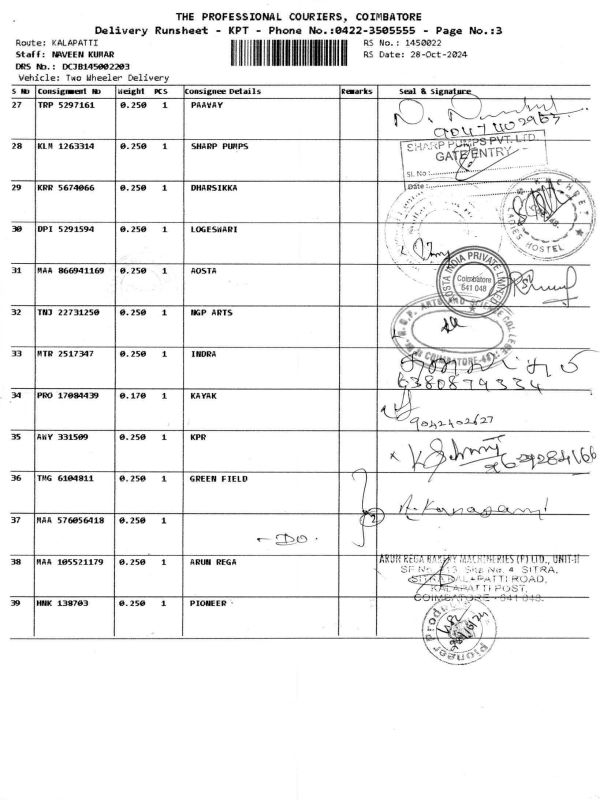 THE PROFESSIONAL COURIERS, COIMBATORE
Delivery Runsheet - KPT - Phone No.:0422-3505555 - Page No.:3
Route: KALAPATTI
RS No.: 1450022
Staff: NAVEEN KUMAR
RS Date: 28-Oct-2024
DRS No.: DCJB145002203
Vehicle: Two Wheeler Delivery
S No Consignment No Weight PCS Consignee Details Remarks Seal & Signature
27 TRP 5297161 0.250 1 PAAVAY
28 KLM 1263314 0.250 1 SHARP PUMPS
SHARP PUMPS PVT. LTD.
GATE ENTRY
Sl. No :
Date :
29 KRR 5674066 0.250 1 DHARSIKKA
LADIES HOSTEL
30 DPI 5291594 0.250 1 LOGESWARI
31 MAA 866941169 0.250 1 AOSTA
AOSTA INDIA PRIVATE LIMITED
Coimbatore
641 048
32 TNJ 22731250 0.250 1 NGP ARTS
N.G.P. ARTS AND SCIENCE COLLEGE
COIMBATORE-48
33 MTR 2517347 0.250 1 INDRA
6380879334
34 PRO 17084439 0.170 1 KAYAK
9042402627
35 AWY 331509 0.250 1 KPR
36 TMG 6104811 0.250 1 GREEN FIELD
2
37 MAA 576056418 0.250 1
- DO.
38 MAA 105521179 0.250 1 ARUN REGA
ARUN REGA BAKERY MACHINERIES (P) LTD., UNIT-II
SITRA,
SITRA KALAPATTI ROAD,
KALAPATTI POST,
COIMBATORE - 641 048.
39 HNK 138703 0.250 1 PIONEER
Pioneer